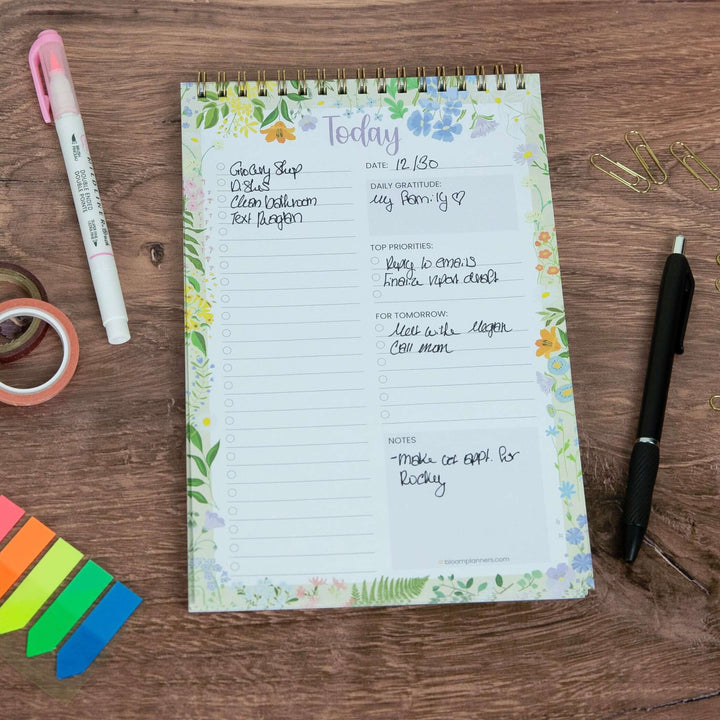 Today
Grocery Shop
Dishes
Clean bathroom
Text Meagan
DATE: 12/30
DAILY GRATITUDE:
My Family ♡
TOP PRIORITIES:
Reply to emails
Finalize report draft
FOR TOMORROW:
Meet with Megan
Call mom
NOTES
-make vet appt. for
Rockey
bloomplanners.com
DOUBLE ENDED